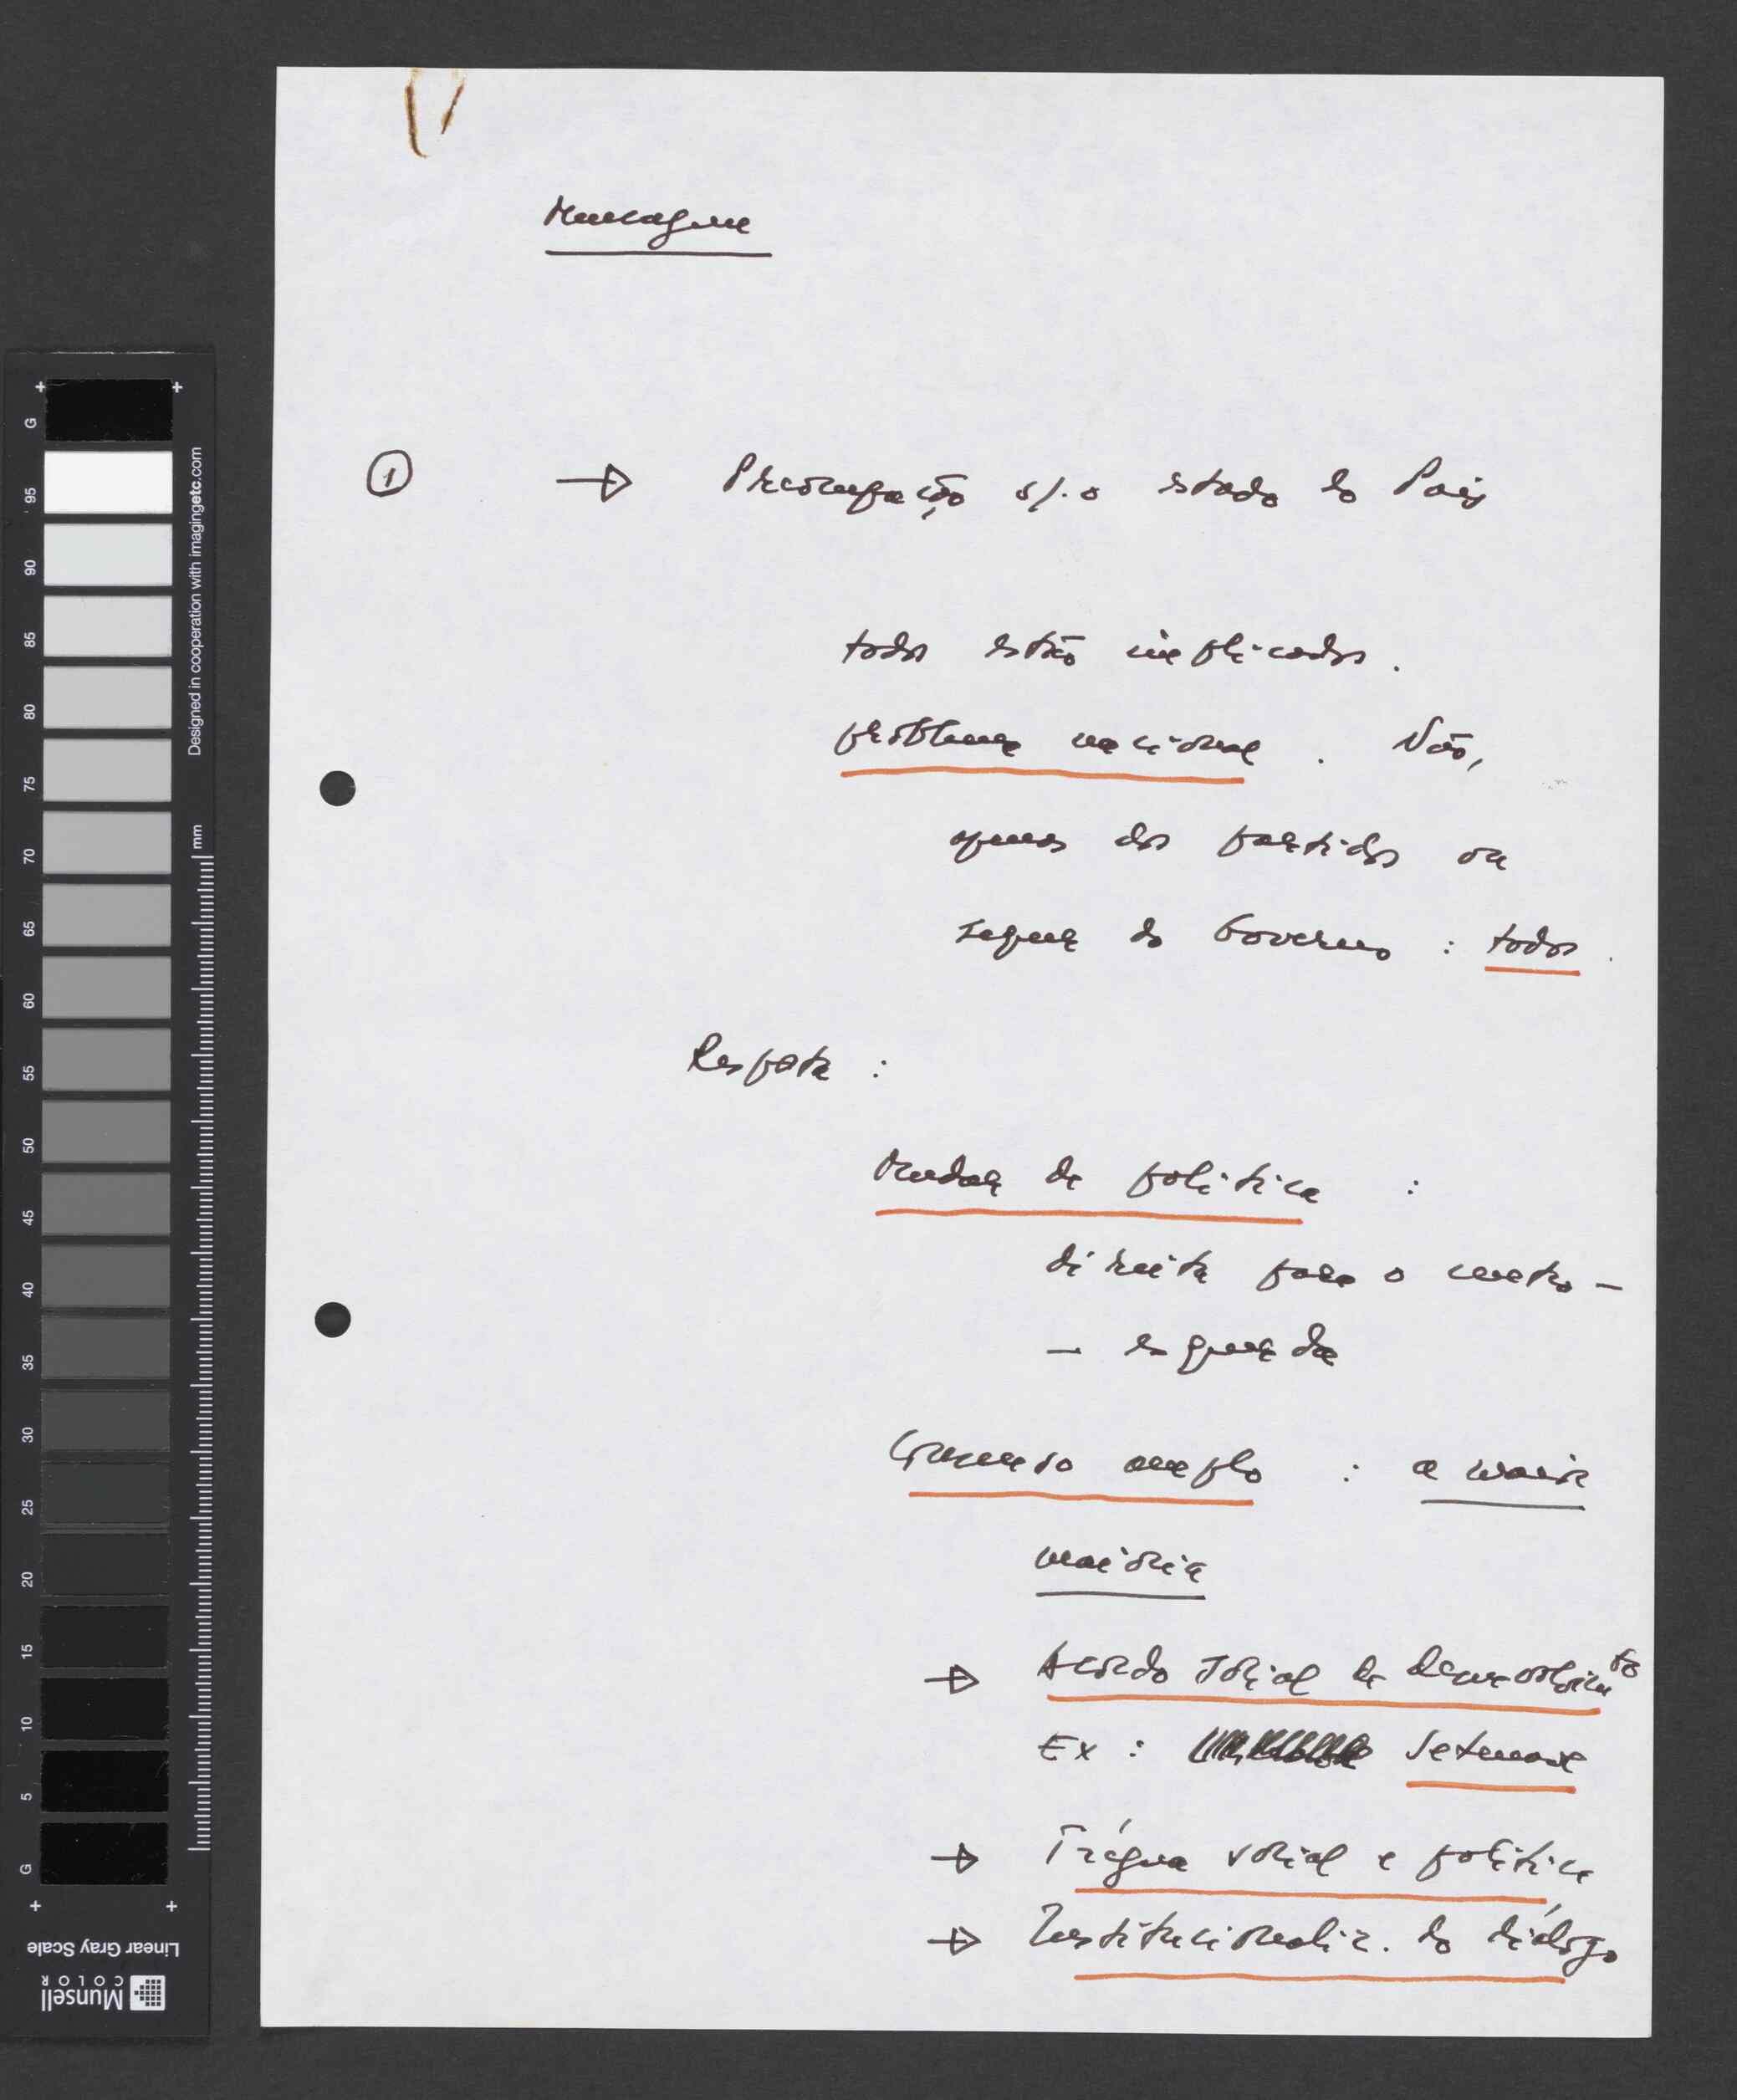 Mensagem
① → Preocupação s/. o estado do País
todos estão implicados.
problema nacional. Não,
apenas dos partidos ou
sequer do Governo : todos.
Resposta :
Mudar de política :
direita para o centro –
– esquerda
Consenso amplo : a maior
maioria
→ Acordo social de desenvolvimto
Ex :
→ Trégua social e política
→ Institucionaliz. do diálogo
G
95
90
85
80
75
70
65
60
55
50
45
40
35
30
25
20
15
10
5
G
Designed in cooperation with imagingetc.com
mm
Linear Gray Scale
Munsell
COLOR